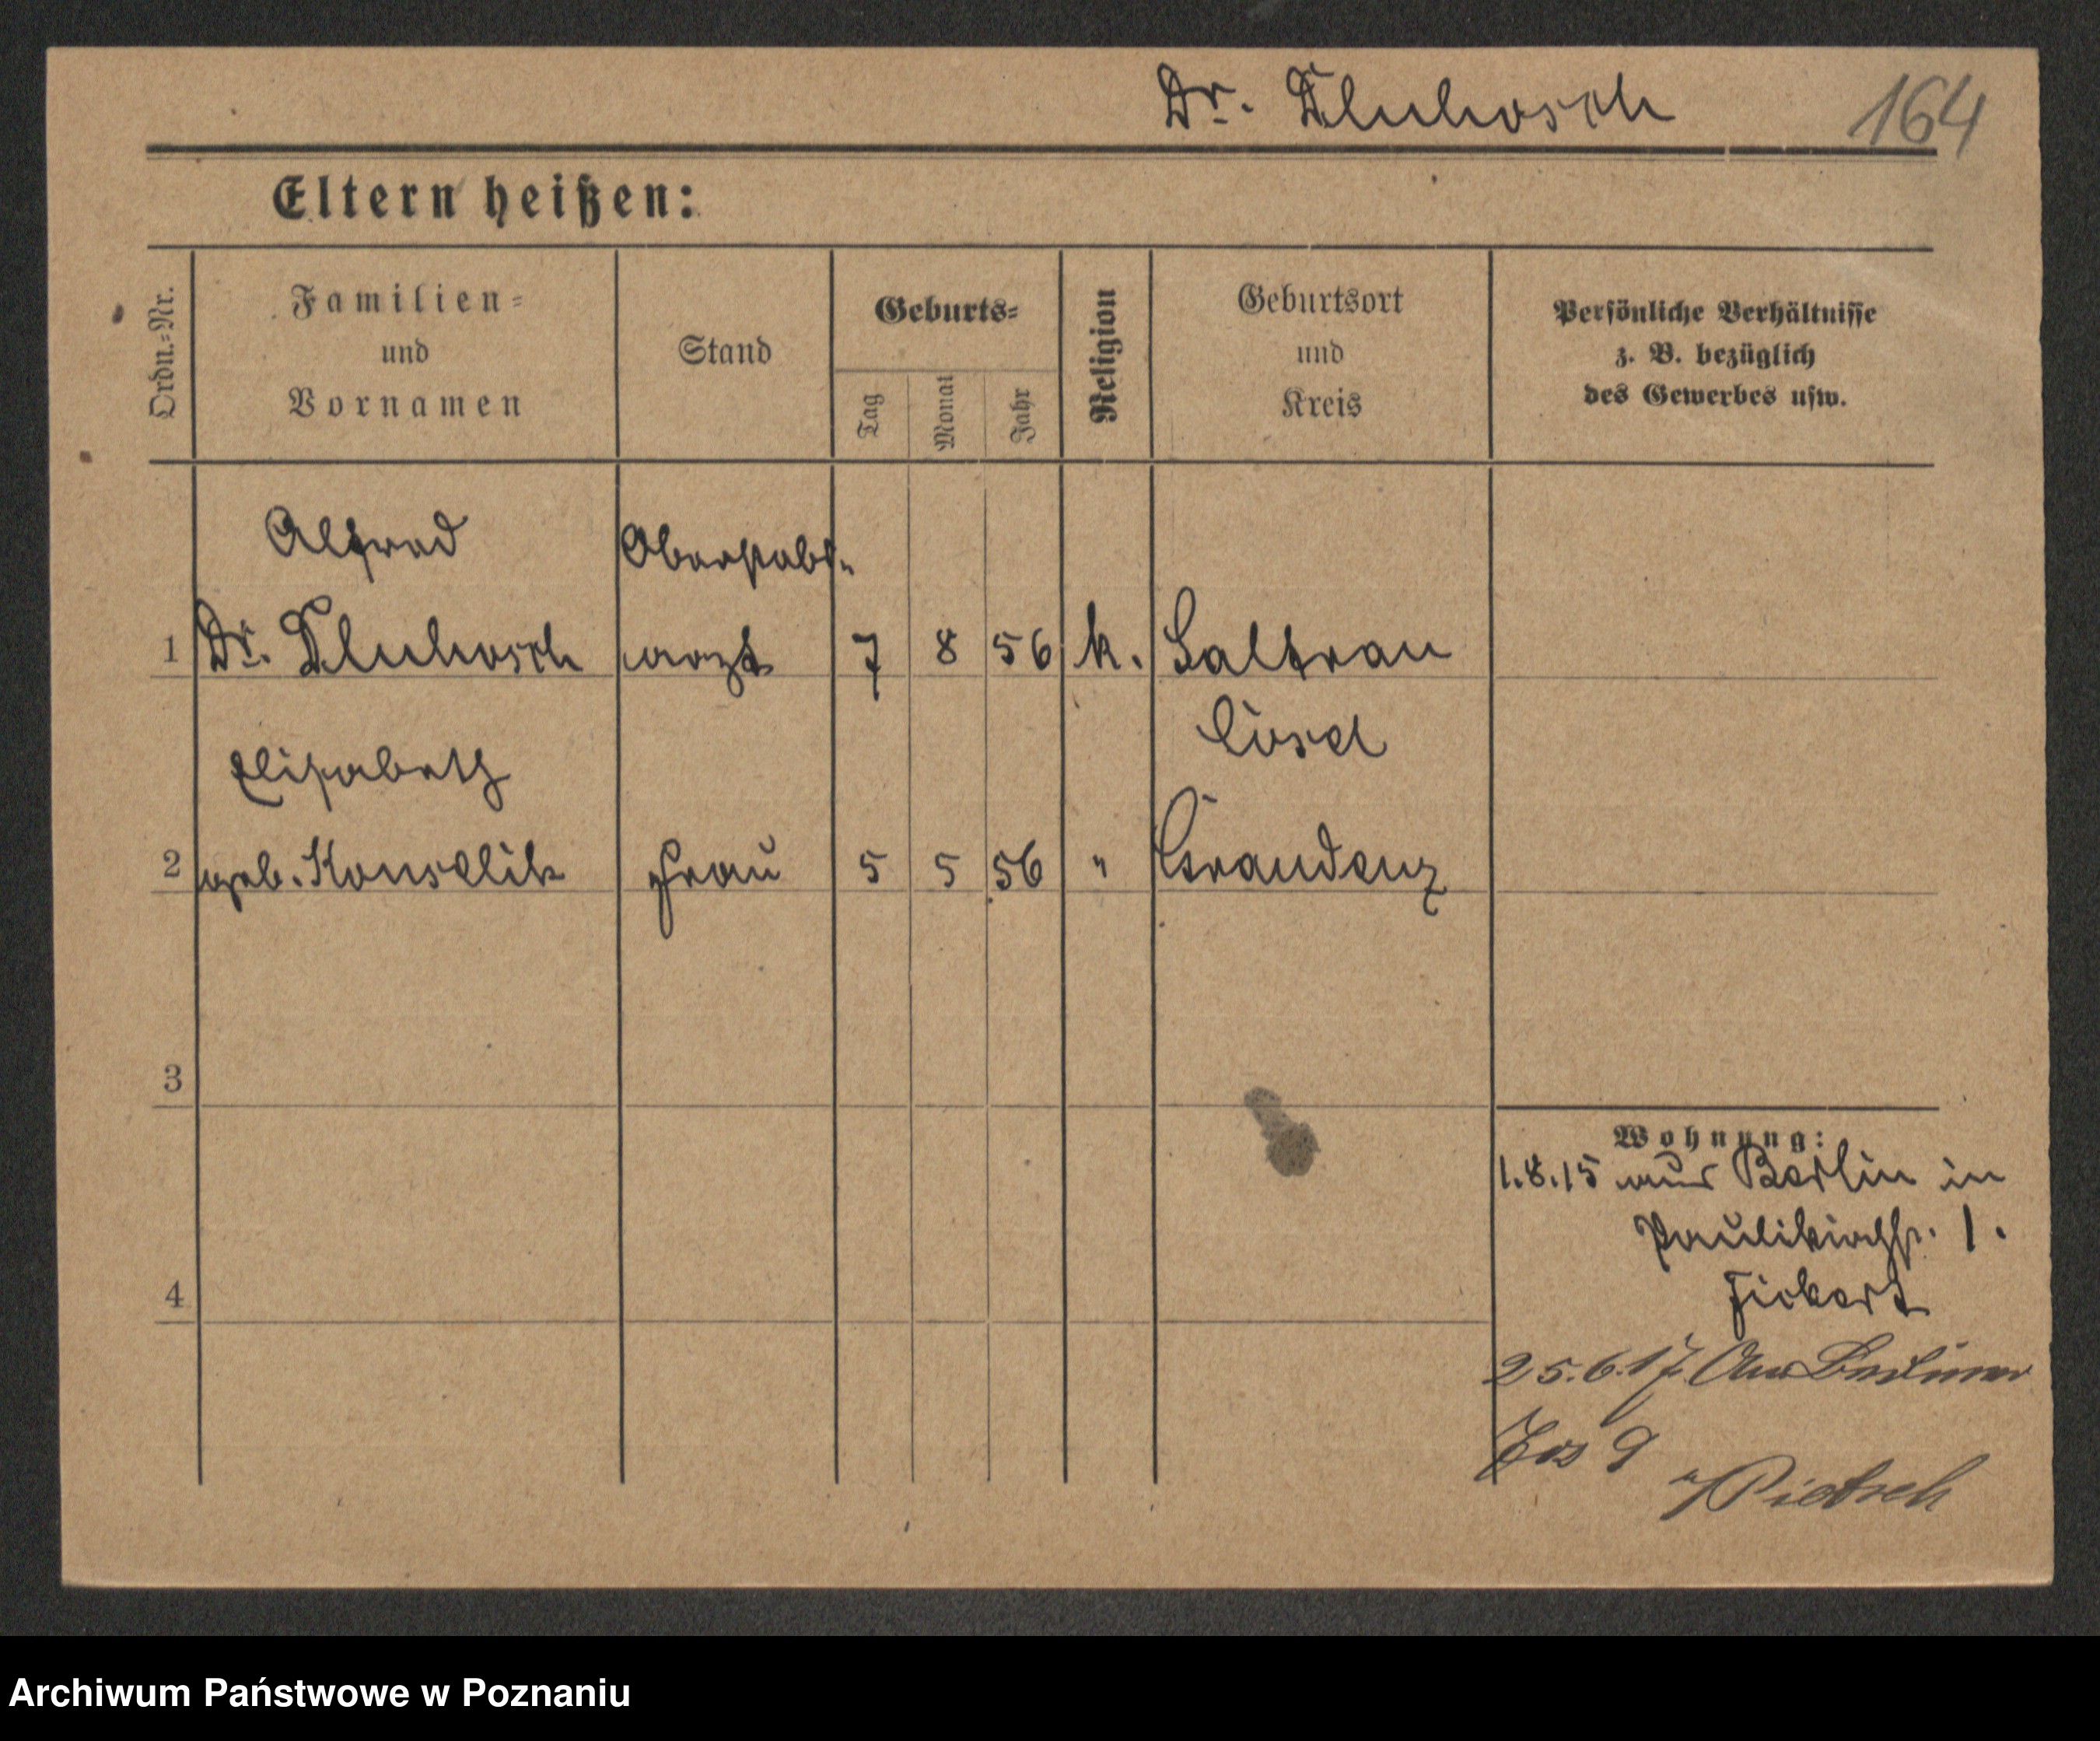 Dr. Dluhosch 164
Eltern heißen:
Ordn.-Nr.
Familien-
und
Vornamen
Stand
Geburts-
Tag
Monat
Jahr
Religion
Geburtsort
und
Kreis
Persönliche Verhältnisse
z. B. bezüglich
des Gewerbes usw.
Alfred Oberstabs-
1 Dr. Dluhosch arzt 7 8 56 k.
Cosel
Elisabeth
2 geb. Frau 5 5 56 " Graudenz
3
4
Wohnung:
1.8.15 aus Berlin in
Paulikirchstr. 1.
Fickert
25.6.17. Aus Berliner
9
Pietsch
Archiwum Państwowe w Poznaniu